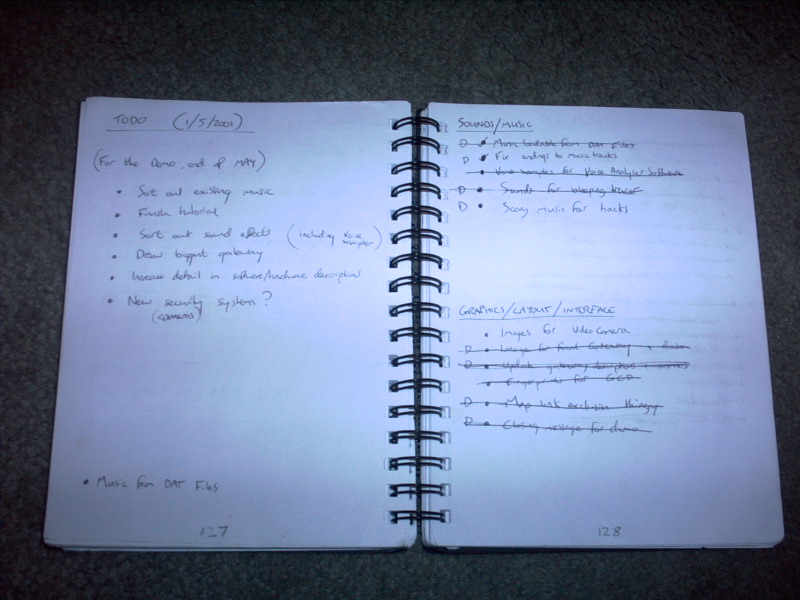 TODO (1/5/2001)
(For the Demo, end of MAY)
• Sort out existing music
• Finish tutorial
• Sort out sound effects (including voice samples)
• Draw biggest gateway
• Increase detail in software/hardware descriptions
• New security systems?
(cameras)
• Music from DAT Files
127
SOUNDS/MUSIC
D • Music loadable from DAT Files
D • Fix endings to music tracks
• Voice samples for Voice Analyser Software
D • Sounds for bleeping tracer
D • Scary music for hacks
GRAPHICS/LAYOUT/INTERFACE
• Images for Video Camera
D • Image for final Gateway
D • Update gateway descriptions
• Fingerprints for GCD
D • Map link exclusion thingy
D • Closing message for demo
128